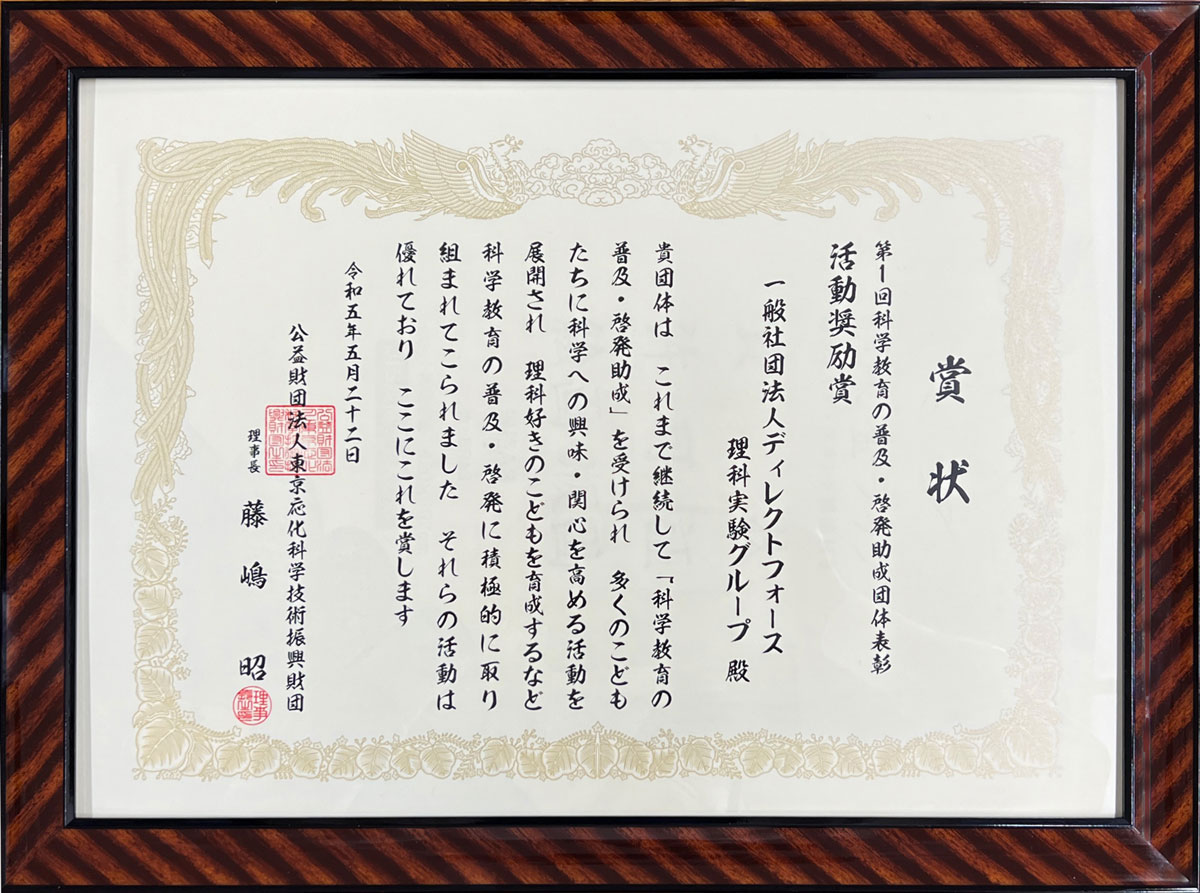 賞状
第1回科学教育の普及・啓発助成団体表彰
活動奨励賞
一般社団法人ディレクトフォース
理科実験グループ 殿
貴団体は これまで継続して「科学教育の
普及・啓発助成」を受けられ 多くのこども
たちに科学への興味・関心を高める活動を
展開され 理科好きのこどもを育成するなど
科学教育の普及・啓発に積極的に取り
組まれてこられました それらの活動は
優れており ここにこれを賞します
令和五年五月二十二日
公益財団法人東京応化科学技術振興財団
理事長 藤嶋昭